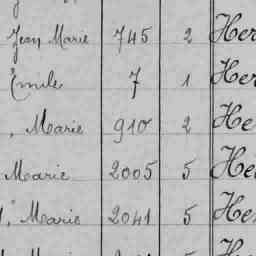 Jean Marie 745 2 Her
Emile 7 1 Her
, Marie 910 2 He
Marie 2005 5 He
Marie 2041 5 He